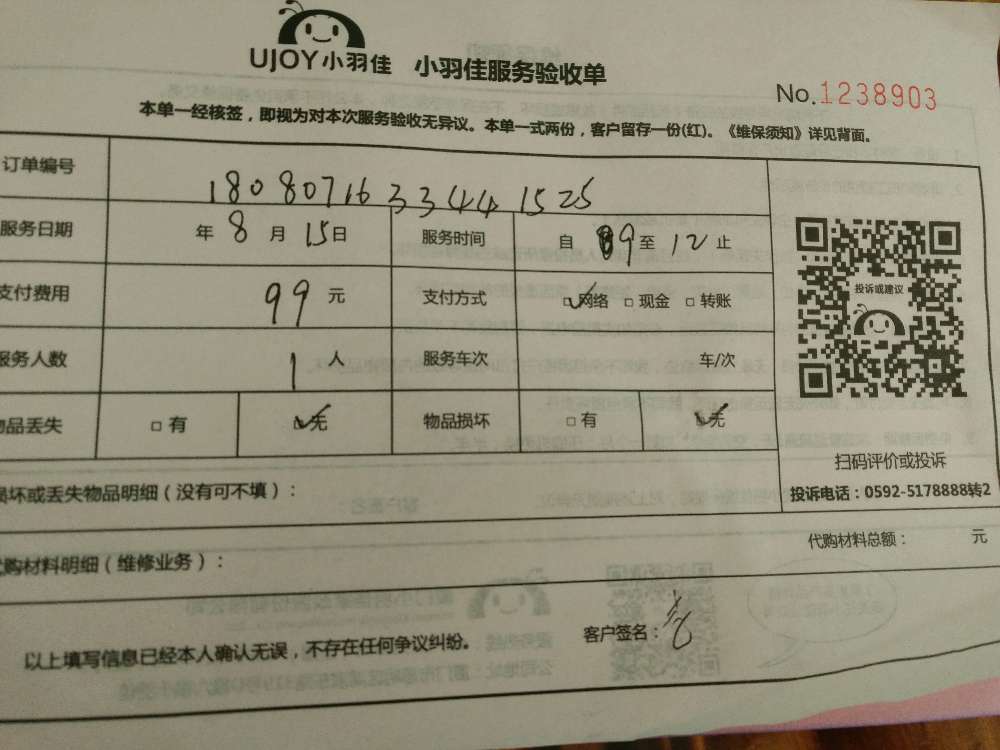 UJOY小羽佳 小羽佳服务验收单
No.1238903
本单一经核签，即视为对本次服务验收无异议。本单一式两份，客户留存一份(红)。《维保须知》详见背面。
订单编号 18080716334441525
服务日期 年 8 月 15 日 服务时间 自 9 至 12 止
支付费用 99 元 支付方式 □网络 □现金 □转账
服务人数 1 人 服务车次 车/次
物品丢失 □有 □无 物品损坏 □有 □无
投诉或建议
扫码评价或投诉
投诉电话：0592-5178888转2
损坏或丢失物品明细（没有可不填）：
代购材料明细（维修业务）： 代购材料总额： 元
以上填写信息已经本人确认无误，不存在任何争议纠纷。 客户签名：